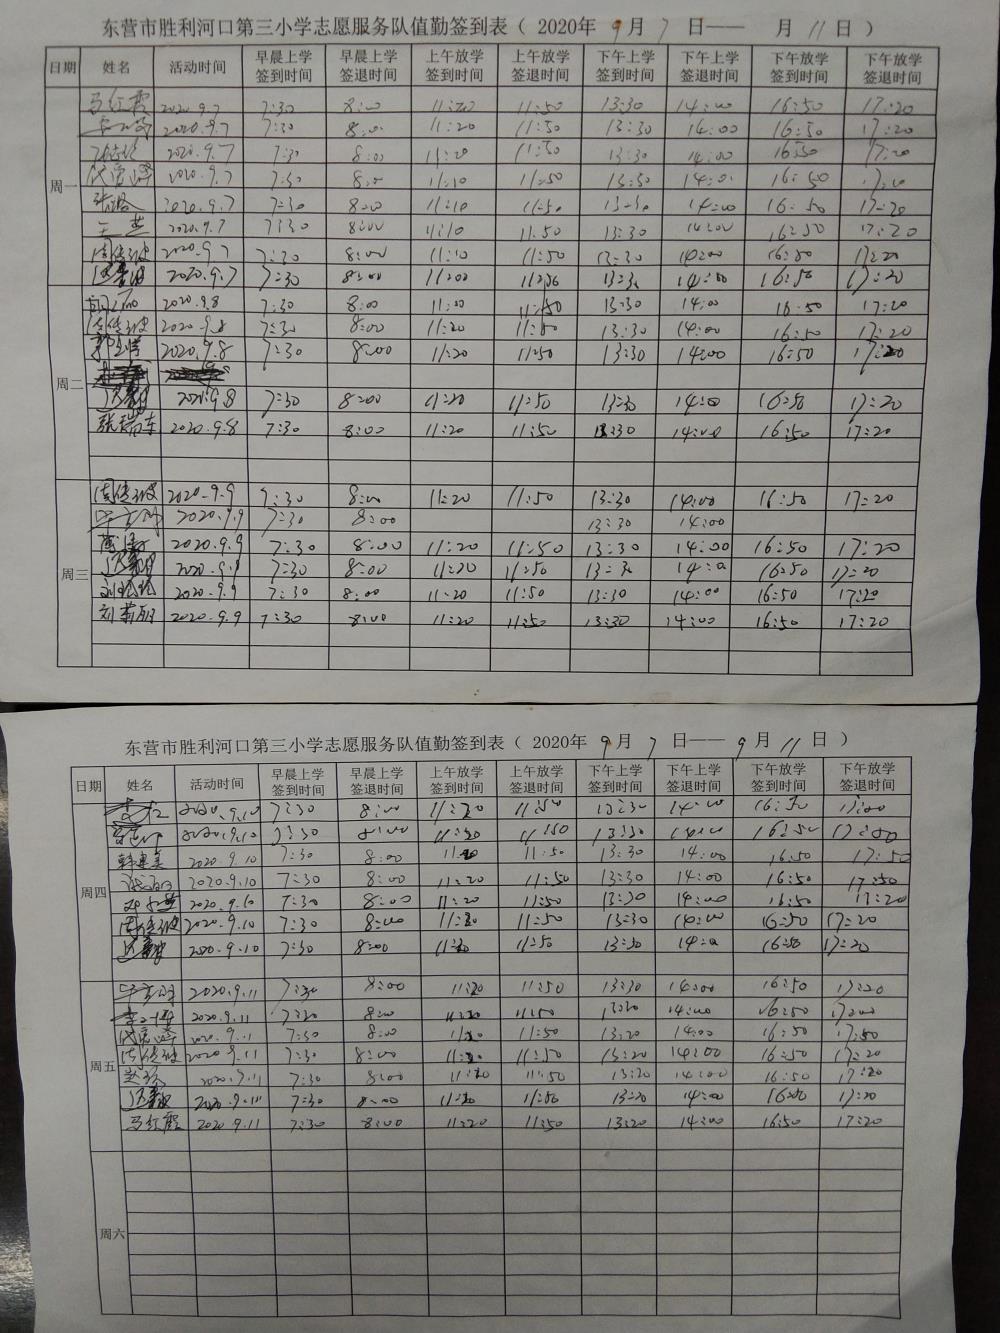 东营市胜利河口第三小学志愿服务队值勤签到表（ 2020年 9月 7 日—— 月 11 日 ）
日期 姓名 活动时间 早晨上学签到时间 早晨上学签退时间 上午放学签到时间 上午放学签退时间 下午上学签到时间 下午上学签退时间 下午放学签到时间 下午放学签退时间
周一
马红霞 2020.9.7 7:30 8:00 11:20 11:50 13:30 14:00 16:50 17:20
2020.9.7 7:30 8:00 11:20 11:50 13:30 14:00 16:50 17:20
2020.9.7 7:30 8:00 11:20 11:50 13:30 14:00 16:50 17:20
2020.9.7 7:30 8:00 11:10 11:50 13:30 14:00 16:50 17:20
2020.9.7 7:30 8:00 11:10 11:50 13:30 14:00 16:50 17:20
王燕 2020.9.7 7:30 8:00 11:10 11:50 13:30 14:00 16:50 17:20
2020.9.7 7:30 8:00 11:10 11:50 13:30 14:00 16:50 17:20
2020.9.7 7:30 8:00 13:30 14:00 16:50 17:20
周二
2020.9.8 7:30 8:00 11:50 13:30 14:00 16:50 17:20
2020.9.8 7:30 8:00 11:20 11:50 13:30 14:00 16:50 17:20
2020.9.8 7:30 8:00 11:20 11:50 13:30 14:00 16:50 17:20
9.8 7:30 8:00 11:20 11:50 13:30 14:00 16:50 17:20
张瑞东 2020.9.8 7:30 8:00 11:20 11:50 13:30 14:00 16:50 17:20
周三
2020.9.9 7:30 8:00 11:20 11:50 13:30 14:00 16:50 17:20
2020.9.9 7:30 8:00 13:30 14:00
2020.9.9 7:30 8:00 11:20 11:50 13:30 14:00 16:50 17:20
2020.9.9 7:30 8:00 11:20 11:50 13:30 14:00 16:50 17:20
2020.9.9 7:30 8:00 11:20 11:50 13:30 14:00 16:50 17:20
2020.9.9 7:30 8:00 11:20 11:50 13:30 14:00 16:50 17:20
东营市胜利河口第三小学志愿服务队值勤签到表（ 2020年 9月 7 日—— 9月 11 日 ）
日期 姓名 活动时间 早晨上学签到时间 早晨上学签退时间 上午放学签到时间 上午放学签退时间 下午上学签到时间 下午上学签退时间 下午放学签到时间 下午放学签退时间
周四
2020.9.10 7:30 8:00 11:20 11:50 13:30 14:00 16:50
2020.9.10 7:30 8:00 11:20 11:50 13:30 14:00 16:50
韩建美 2020.9.10 7:30 8:00 11:20 11:50 13:30 14:00 16:50 17:50
2020.9.10 7:30 8:00 11:20 11:50 13:30 14:00 16:50 17:50
2020.9.10 7:30 8:00 11:20 11:50 13:30 14:00 16:50 17:20
2020.9.10 7:30 8:00 11:20 11:50 13:30 14:00 16:50 17:20
2020.9.10 7:30 8:00 11:20 11:50 13:30 14:00 16:50 17:20
周五
2020.9.11 7:30 8:00 11:20 11:50 13:30 14:00 16:50 17:20
2020.9.11 8:00 11:20 11:50 13:20 14:00 16:50
2020.9.11 7:30 8:00 11:50 13:20 14:00 16:50 17:50
2020.9.11 7:30 8:00 11:20 11:50 13:20 14:00 16:50 17:20
2020.9.11 7:30 8:00 11:20 11:50 13:20 14:00 16:50 17:20
2020.9.11 7:30 8:00 11:20 11:50 13:20 14:00 17:20
马红霞 2020.9.11 7:30 8:00 11:20 11:50 13:20 14:00 16:50 17:20
周六